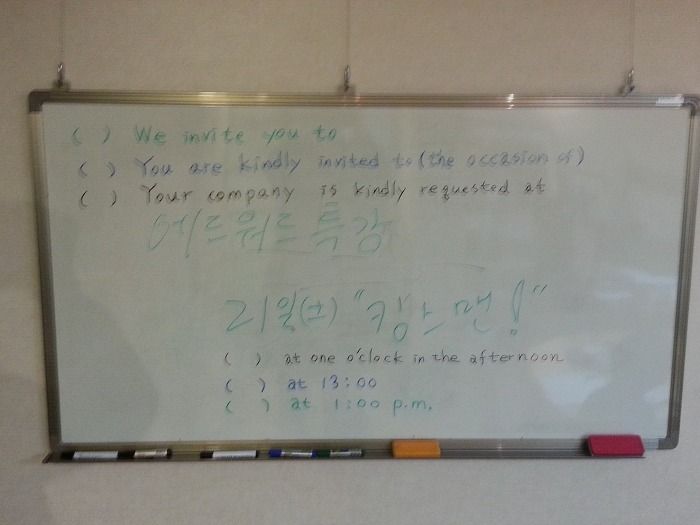 ( ) We invite you to
( ) You are kindly invited to (the occasion of)
( ) Your company is kindly requested at
에드워드특강
21일(土) "킹스맨!"
( ) at one o'clock in the afternoon
( ) at 13:00
( ) at 1:00 p.m.